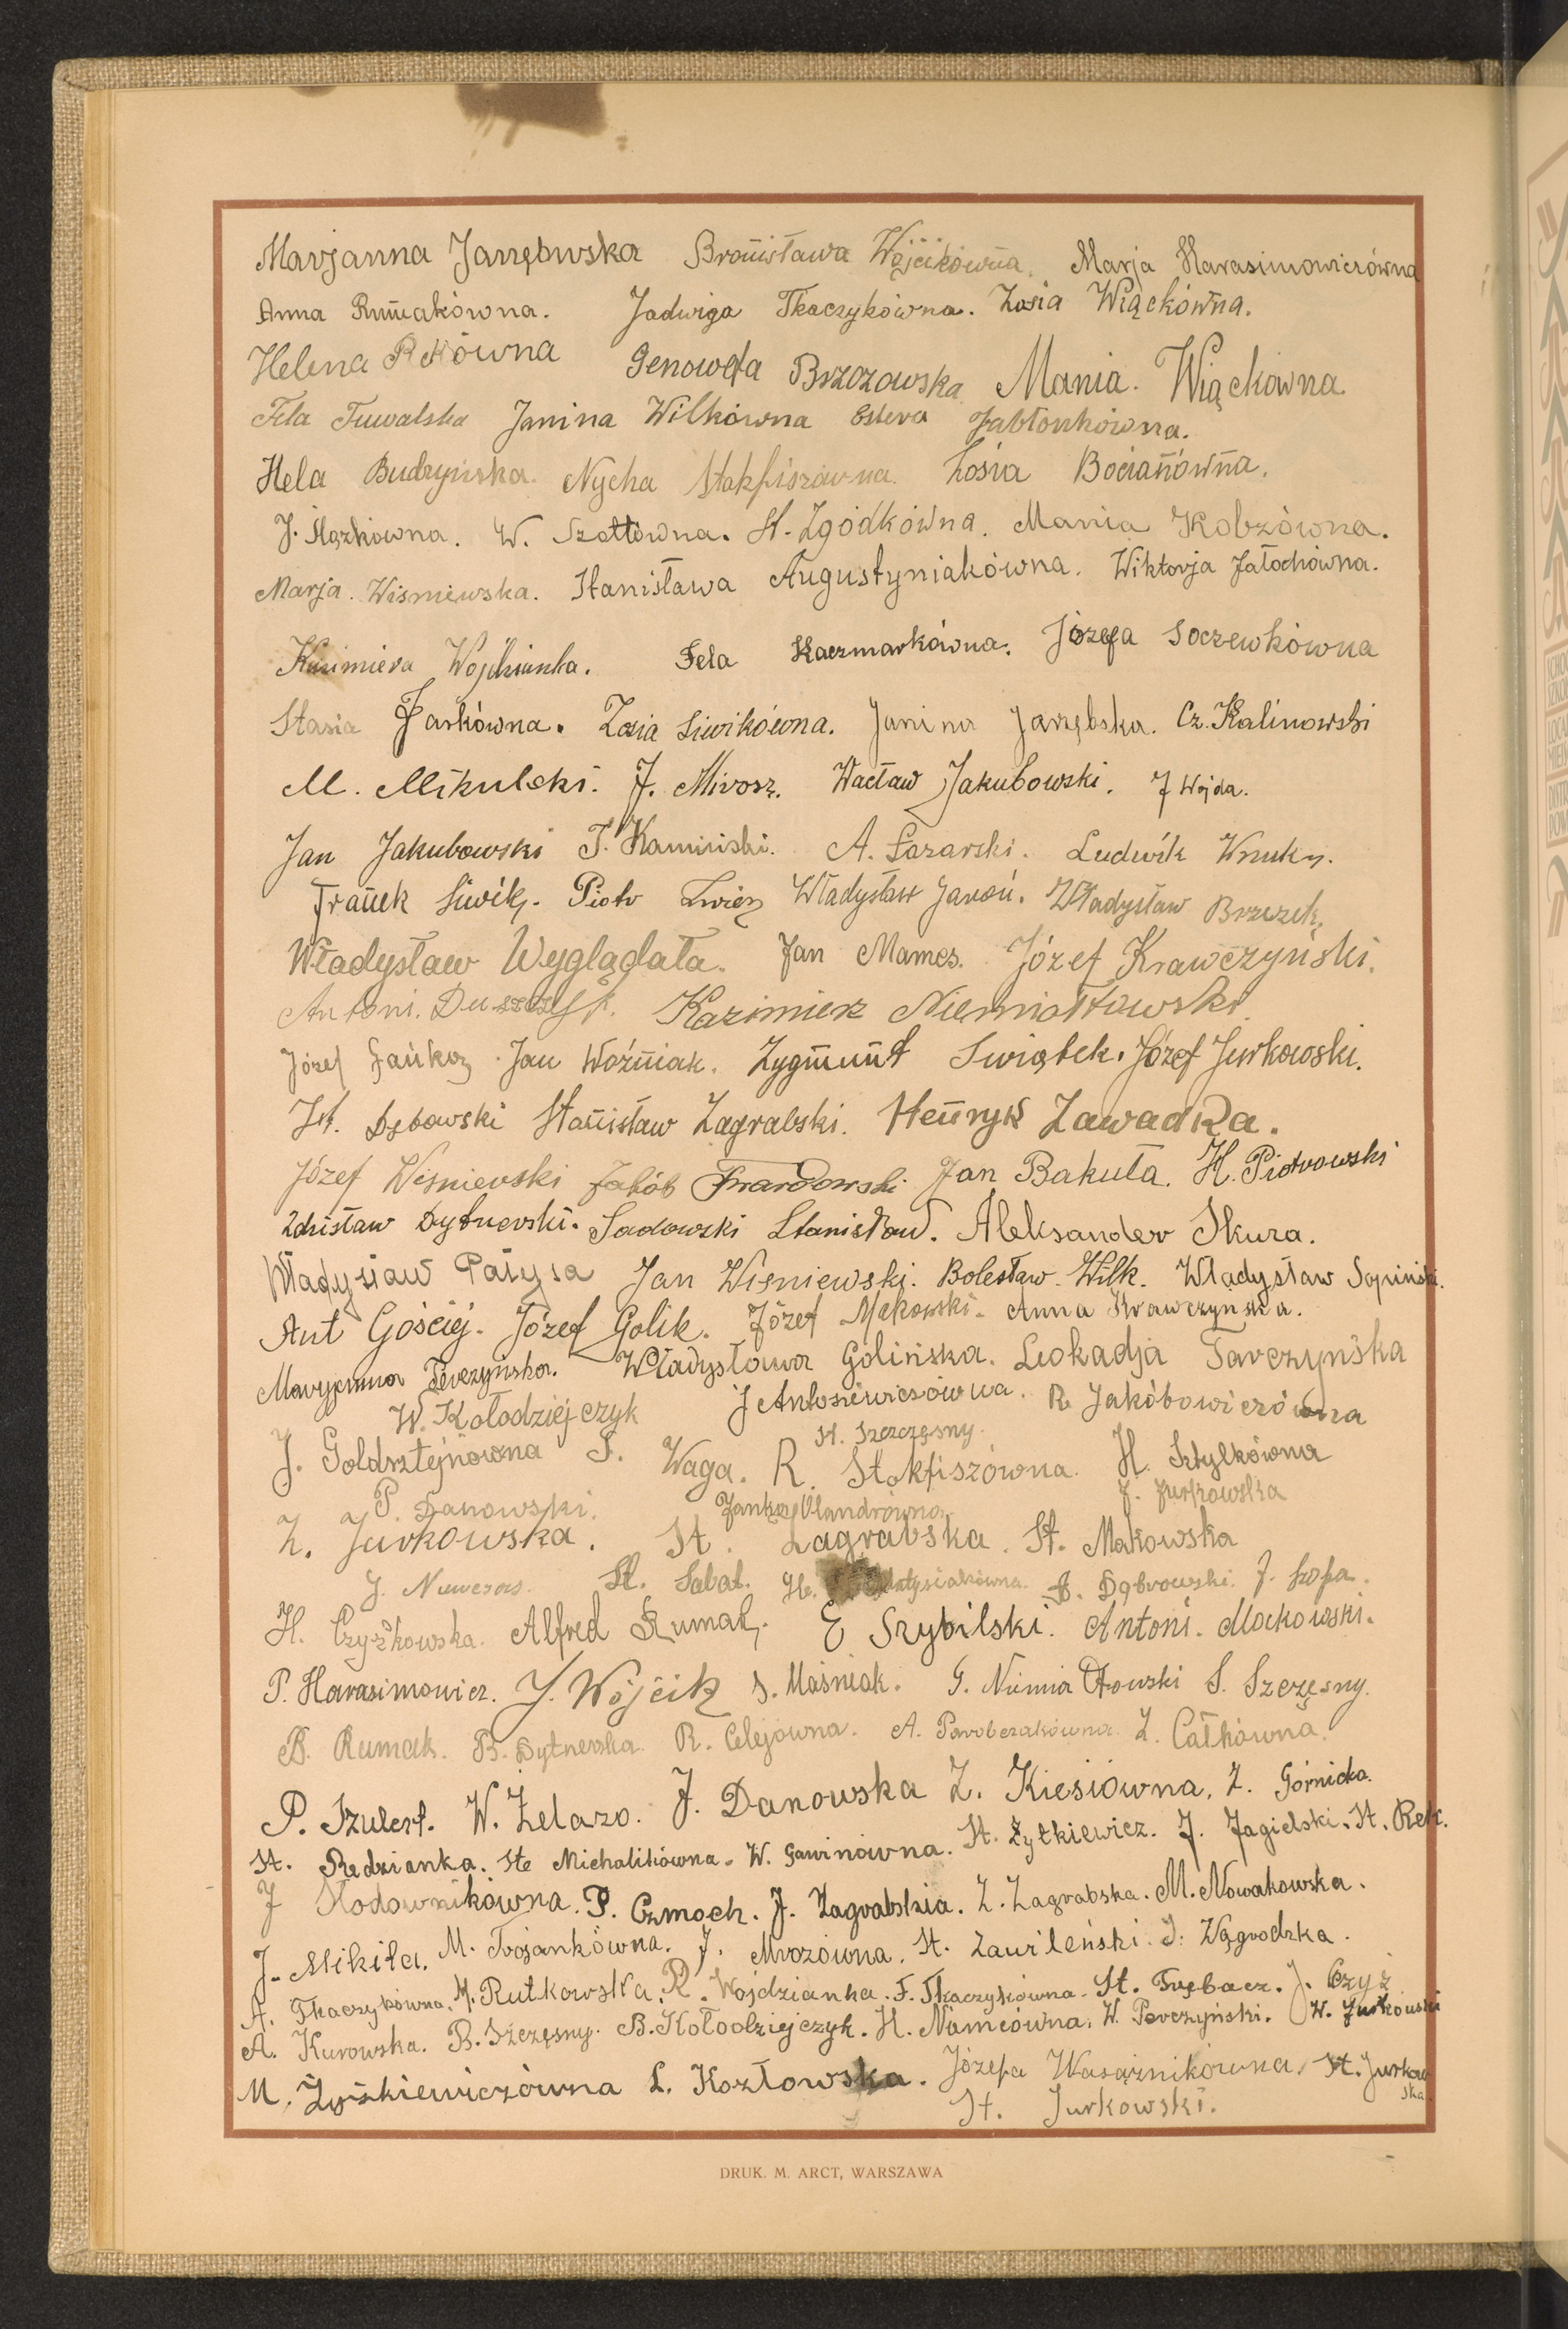 Marjanna Jarzębwska Bronisława Wójcikówna. Marja Harasimowiczówna
Anna Rumakówna. Jadwiga Tkaczykówna. Zosia Wiąckówna.
Helena Rekówna Genowefa Brzozowska Mania. Wiąckówna.
Fela Tuwalska Janina Wilkówna Estera Jabłonkówna.
Hela Budzyńska. Nycha Stokfiszówna. Zosia Bocianówna.
J. Ślązkówna. W. Szottówna. St. Zgódkówna. Mania Kobzówna.
Marja. Wismiewska. Stanisława Augustyniakówna. Wiktorja Jałochówna.
Kazimiera Wojdzianka. Fela Kaczmarkówna. Józefa Soczewkówna
Stasia Jaskówna. Zosia Siwikówna. Janina Jarzębska. Cz. Kalinowski
M. Mikulski. J. Mirosz. Wacław Jakubowski. J Wojda.
Jan Jakubowski T. Kamiński. A. Łazarski. Ludwik Wnuk.
Franek Siwik. Piotr Zwierz Władysław Jaroń. Władysław Brzezek.
Władysław Wyglądała. Jan Mames. Józef Krawczyński.
Antoni. Kazimierz Niemiałtowski.
Józef Jan Woźniak. Zygmunt Swiątek. Józef Jurkowski.
St. Dębowski Stanisław Zagrabski. Henryk Zawadka.
Józef Wiśnievski Jakób Twardowski Jan Bakuła. H. Piotrowski
Zdzisław Dytnerski. Sadowski Stanisław. Aleksander Skura.
Władysław Patysa Jan Wiśniewski. Bolesław. Wilk. Władysław Sapiński.
Ant Gościej. Józef Golik. Józef Makowski. Anna Krawczyńska.
Maryanna Perczyńska. Władysława Golińska. Leokadja Tarczyńska
W. Kołodziejczyk J Antosiewiczówna. R Jakóbowiczówna
J. Goldsztejnówna S. Waga. St. Szczęsny. R. Stokfiszówna. H. Sztylkówna
P. Danowski. Janka Olandrówna J. Jurkowska
Z. Jurkowska. St. Zagrabska. St. Makowska
J. St. Sabat. He. Matysiakówna. B. Dąbrowski. J. Szopa.
H. Czyżkowska. Alfred Rumak. E Szybilski. Antoni. Mackowski.
P. Harasimowicz. J. Wójcik S. Maśniak. G. Niemiałtowski S. Szczęsny.
B. Rumak. B. Dytnerska R. Celejówna. A. Parobczakówna. Z. Całkówna.
P. Szulerf. W. Żelazo. J. Danowska Z. Kiesiówna. Z. Górnicka.
St. Redzianka. Ste Michalikówna. W. Gawinówna. St. Żytkiewicz. J. Jagielski. St. Rek.
J Hodownikówna. P. Czmoch. J. Zagrabskia. Z. Zagrabska. M. Nowakowska.
J. Mikiła. M. Trojankówna. J. Mrozówna. St. Zawileński. J. Wągrodzka.
A. Tkaczykówna. M. Rutkowska. R. Wojdzianka. F. Tkaczykówna. St. Trębacz. J. Czyż
A. Kurowska. B. Szczęsny. B. Kołodziejczyk. H. Namcówna. W. Perczyński. W. Jurkowski
M. Żyśkiewiczówna L. Kozłowska. Józefa Wasążnikówna. St. Jurkowska
St. Jurkowski.
DRUK. M. ARCT, WARSZAWA